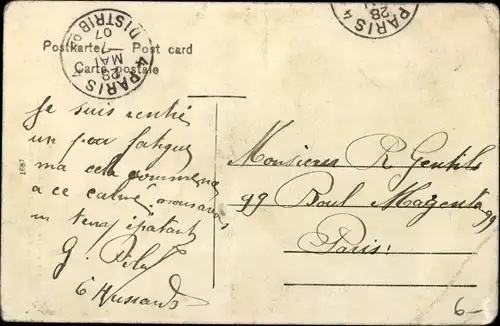 PARIS 4
DISTRIB
28
MAI
07
PARIS 4
28
Postkarte
Post card
Carte postale
1687
Je suis rentré
un peu fatigué
ma cela commence
a ce calmé. nous avons
un temps épatant
G.
6 Hussards
Monsieur R Gentils
99 Boul Magenta 99
Paris
6-